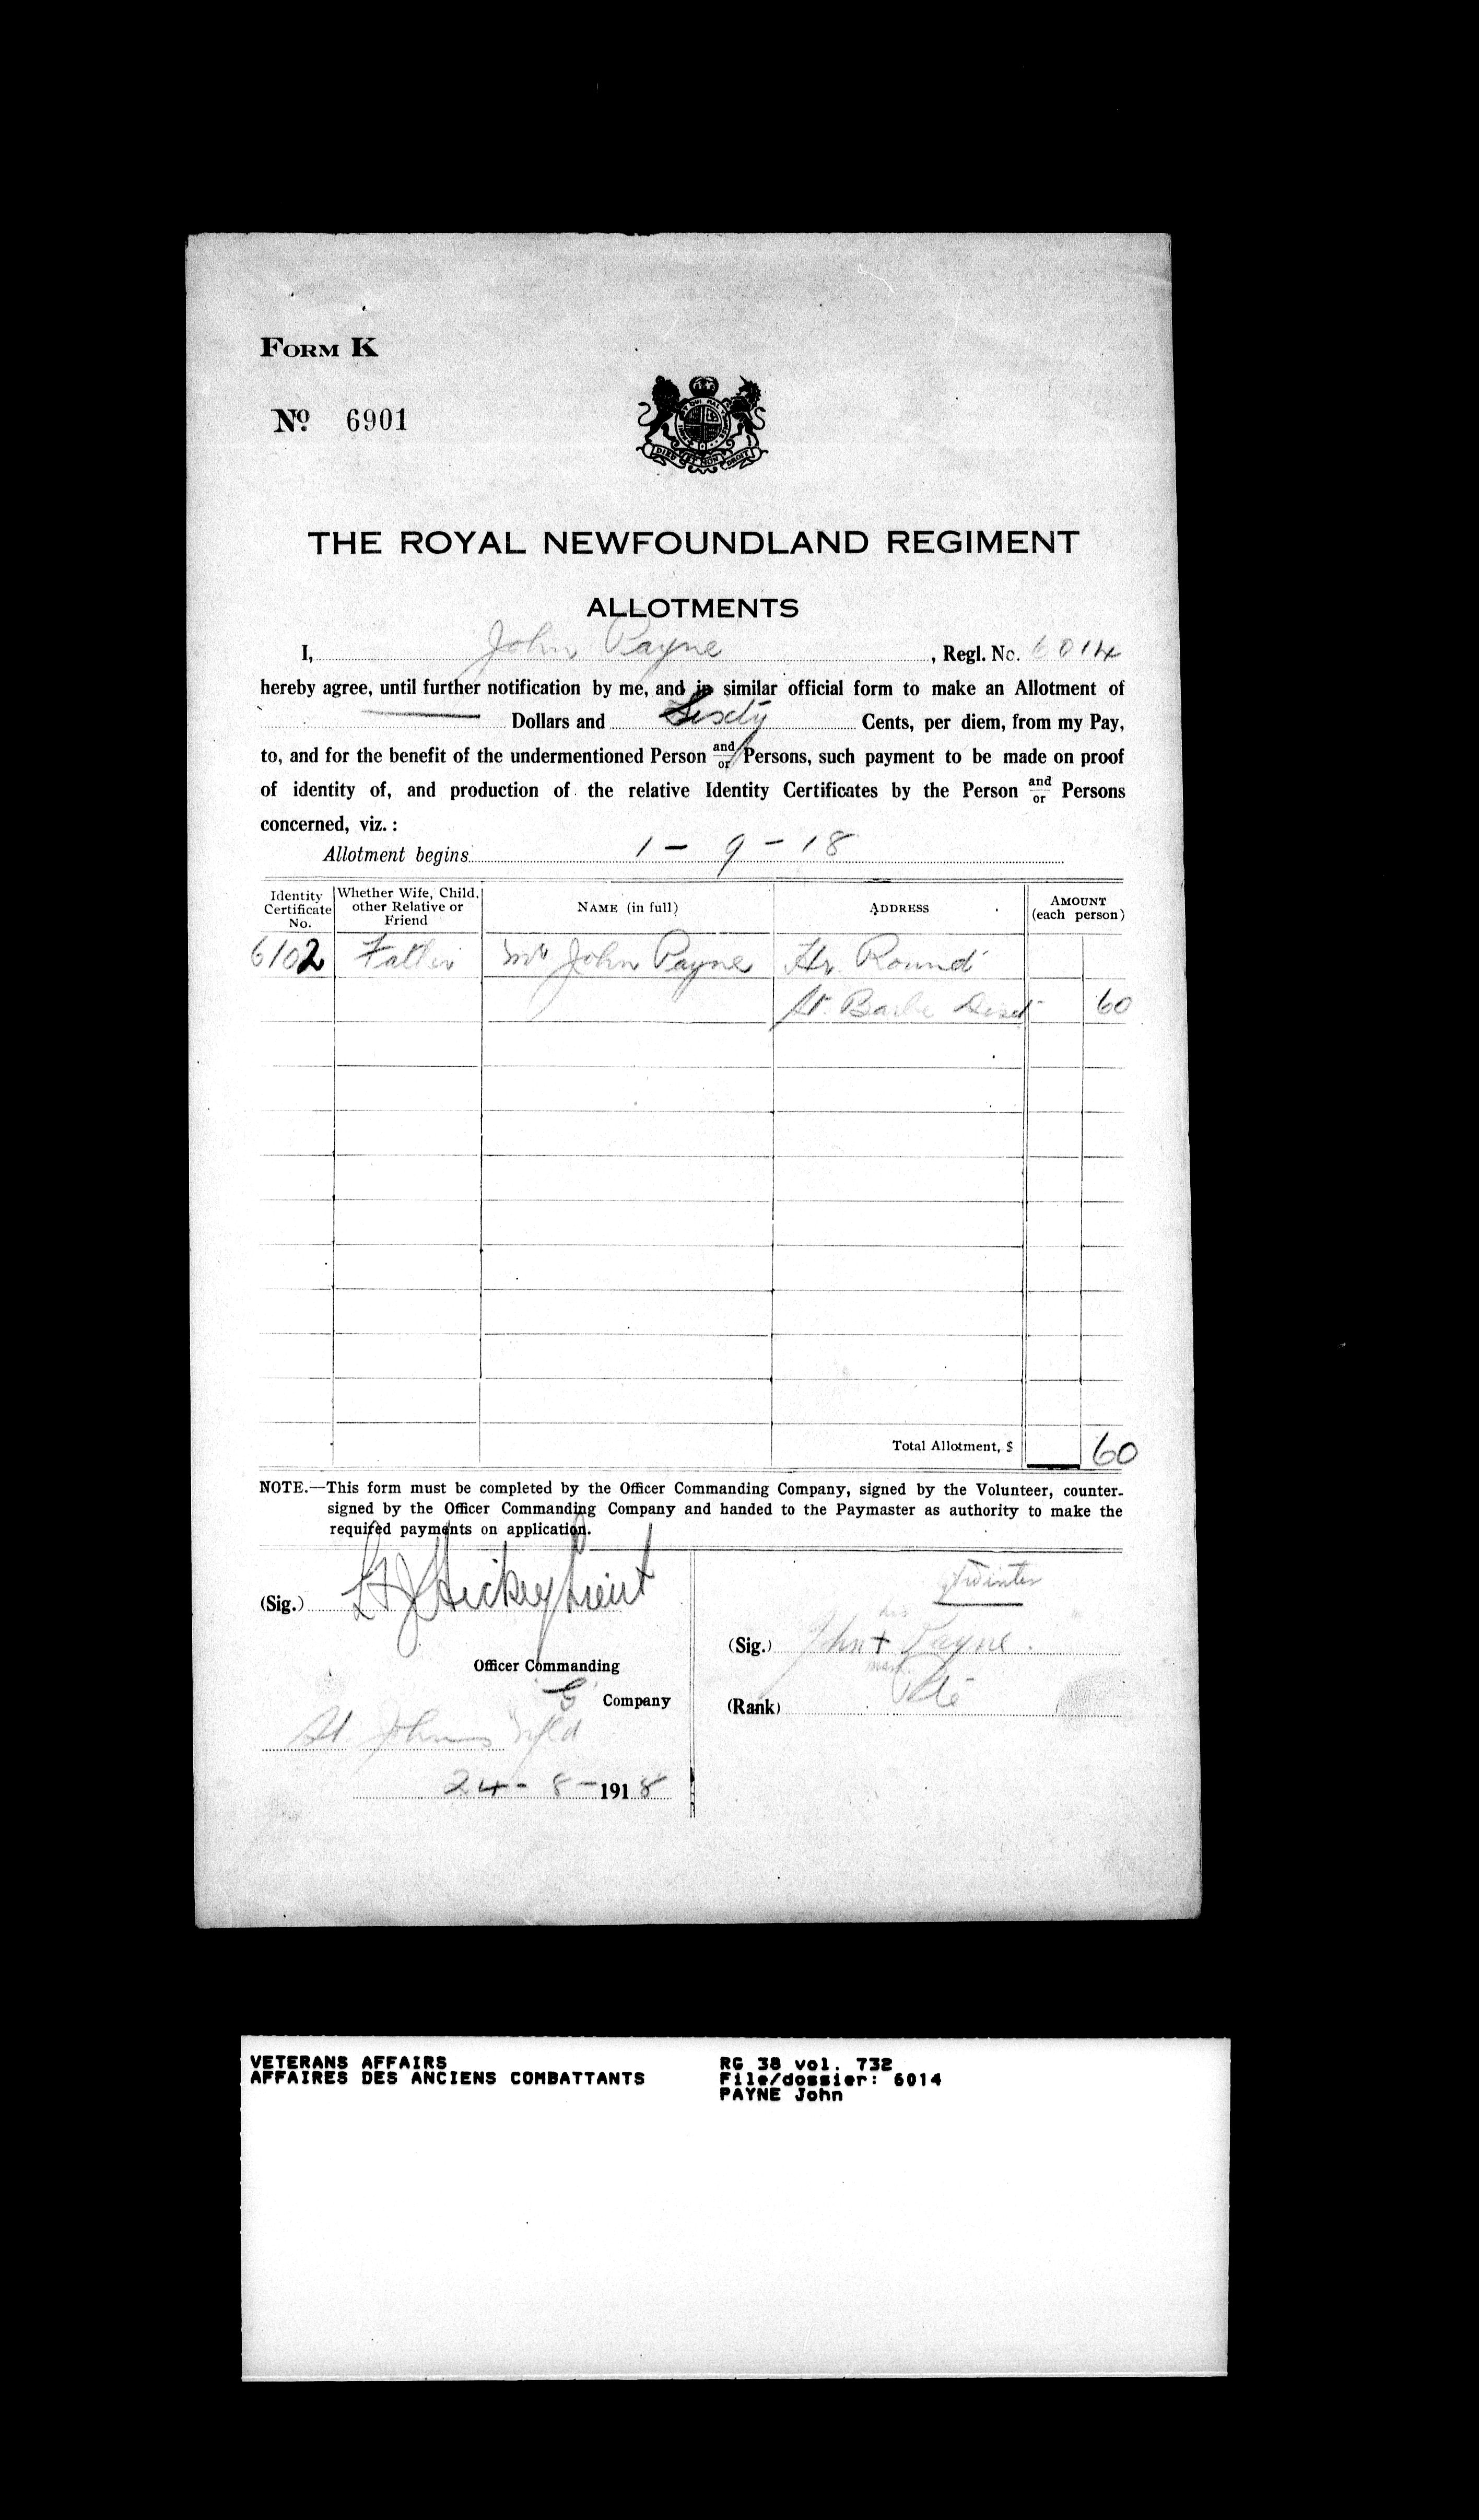 FORM K
No. 6901
THE ROYAL NEWFOUNDLAND REGIMENT
ALLOTMENTS
I, John Payne, Regl. No. 6014
hereby agree, until further notification by me, and in similar official form to make an Allotment of
— Dollars and Sixty Cents, per diem, from my Pay,
to, and for the benefit of the undermentioned Person and/or Persons, such payment to be made on proof
of identity of, and production of the relative Identity Certificates by the Person and/or Persons
concerned, viz.:
Allotment begins 1 - 9 - 18
Identity Certificate No. Whether Wife, Child, other Relative or Friend NAME (in full) ADDRESS AMOUNT (each person)
6102 Father Mr John Payne Hr. Round
St. Barbe Dist 60
Total Allotment, $ 60
NOTE.—This form must be completed by the Officer Commanding Company, signed by the Volunteer, counter-
signed by the Officer Commanding Company and handed to the Paymaster as authority to make the
required payments on application.
(Sig.) Hickey Lieut
Officer Commanding
Company
St Johns Nfld
24 - 8 - 1918
Winter
his
(Sig.) John + Payne.
mark
(Rank) Pte
VETERANS AFFAIRS
AFFAIRES DES ANCIENS COMBATTANTS
RG 38 vol. 732
File/dossier: 6014
PAYNE John